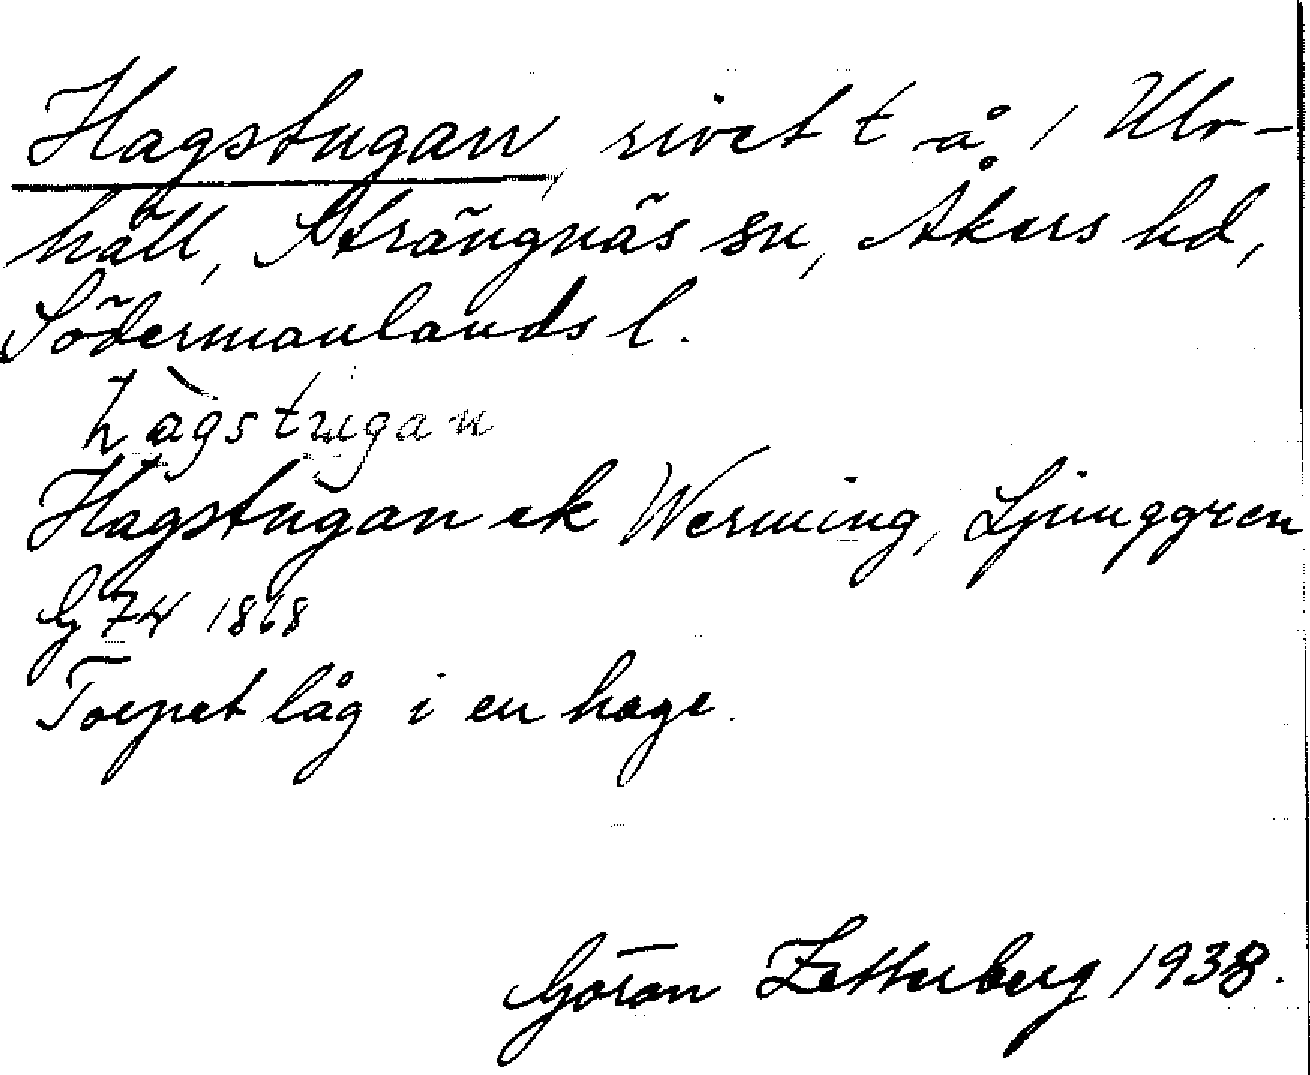 Hagstugan, rivet t å / Ulv-
häll, Strängnäs sn, Åkers hd,
Södermanlands l.
hàgstugan
Hagstugan ek Werming, Ljunggren
G 74 1868
Torpet låg i en hage.
Göran Zetterberg 1938.